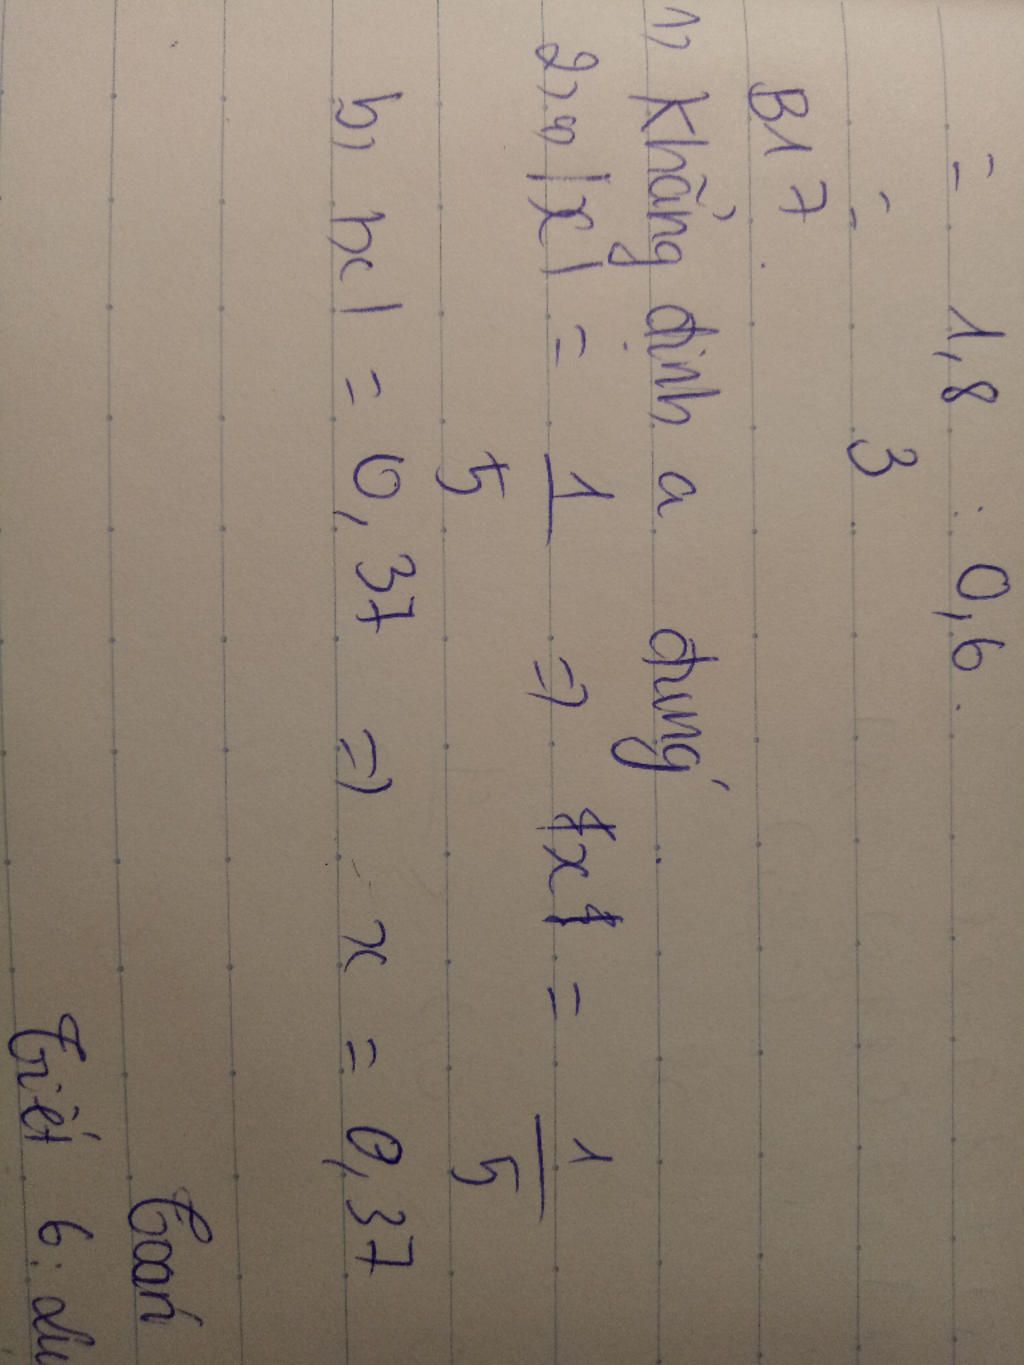 = 1,8 : 0,6.
= 3
B17
1) Khẳng định a đúng.
2) a) |x| = 1/5 => |x| = 1/5
b) |x| = 0,37 => x = 0,37
Toán
Tiết 6: